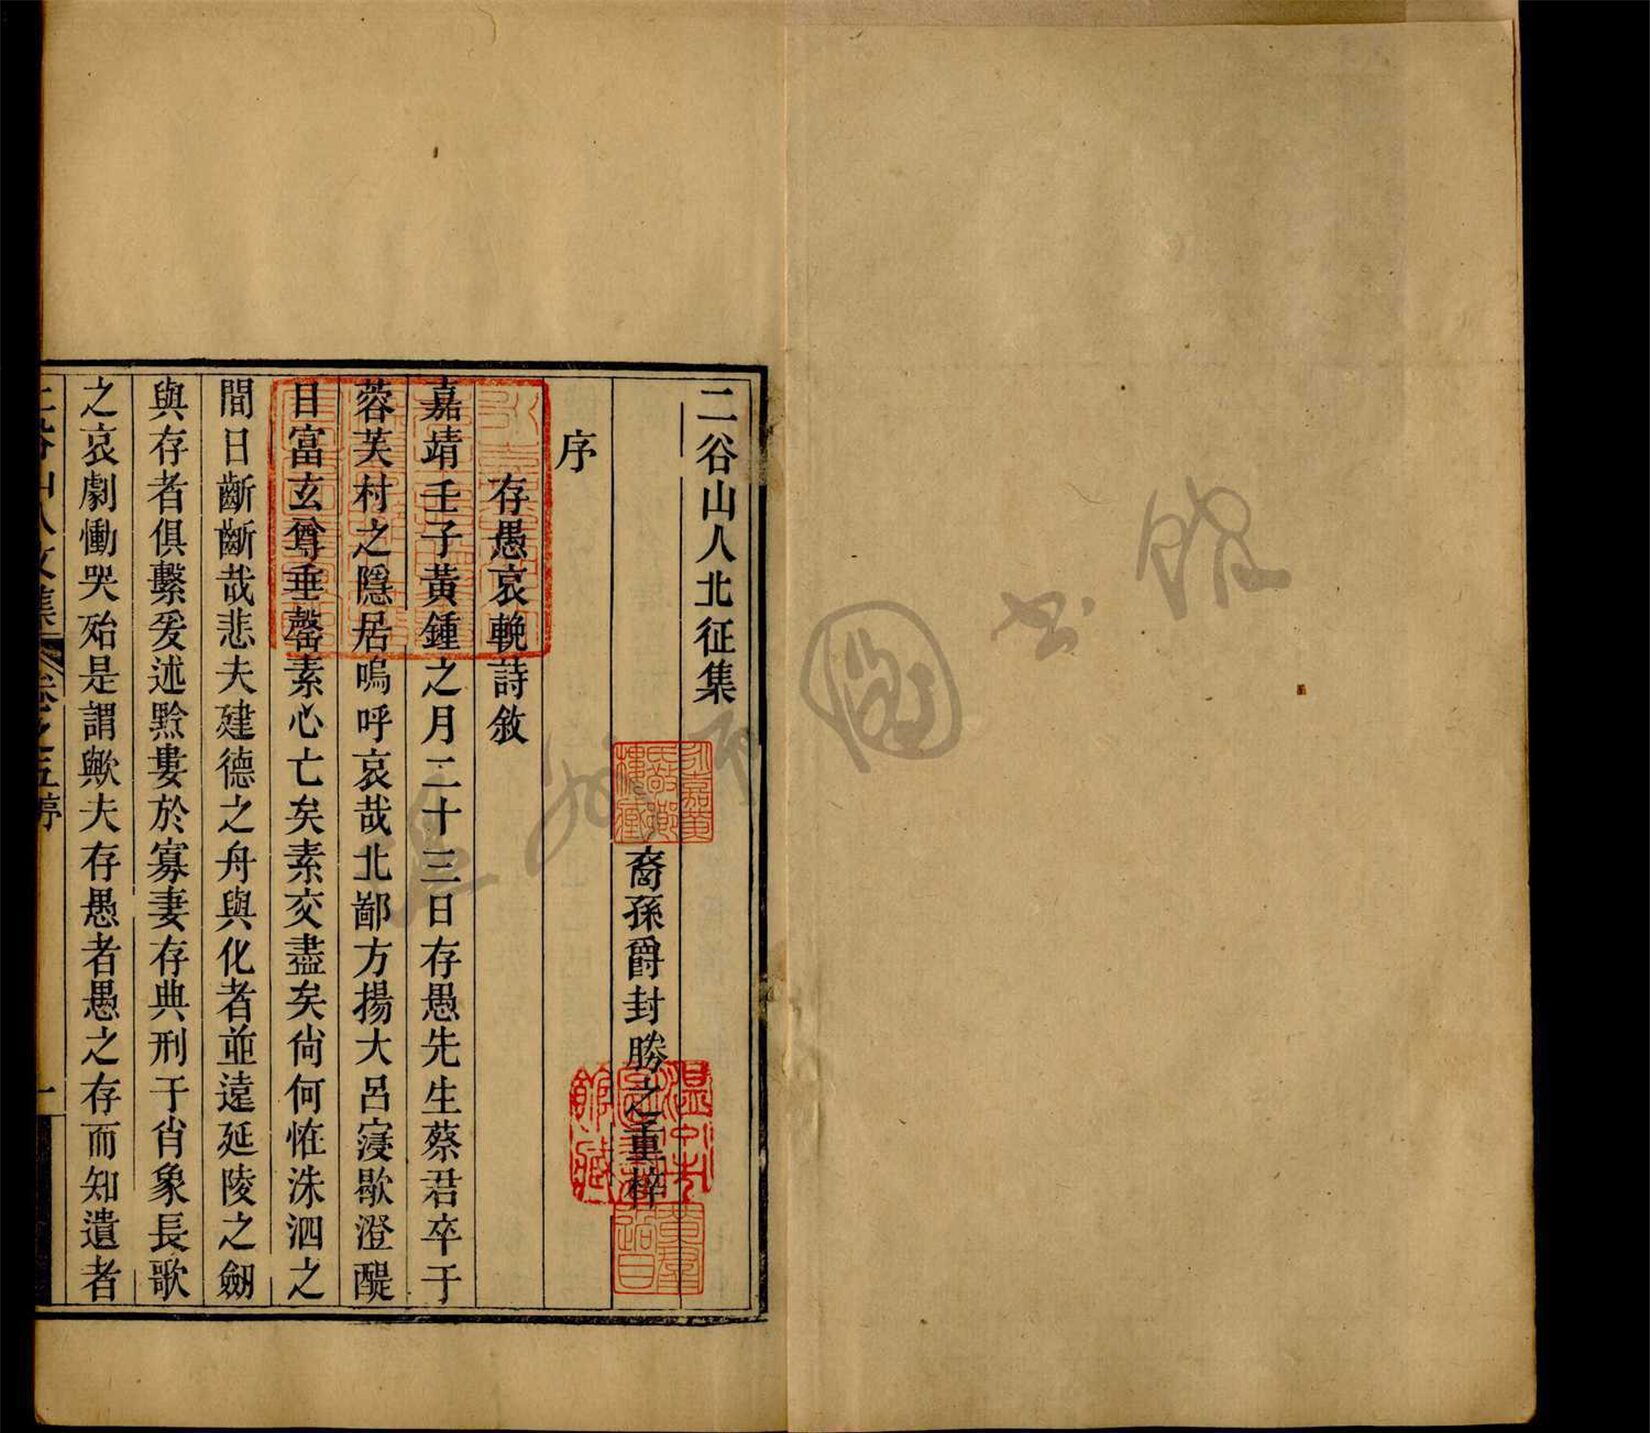 二谷山人北征集
裔孫爵封勝之重梓
序
存愚哀輓詩敘
嘉靖壬子黃鍾之月二十三日存愚先生蔡君卒于
蓉芙村之隱居嗚呼哀哉北鄙方揚大呂寖歇澄醍
目富玄尊垂罄素心亡矣素交盡矣尙何恠洙泗之
間日齗齗哉悲夫建德之舟與化者並遠延陵之劒
與存者俱繫爰述黔婁於寡妻存典刑于肖象長歌
之哀劇慟哭殆是謂歟夫存愚者愚之存而知遺者
二谷山人文集 卷之五 序 一
溫州市圖書館藏
溫州市圖書館